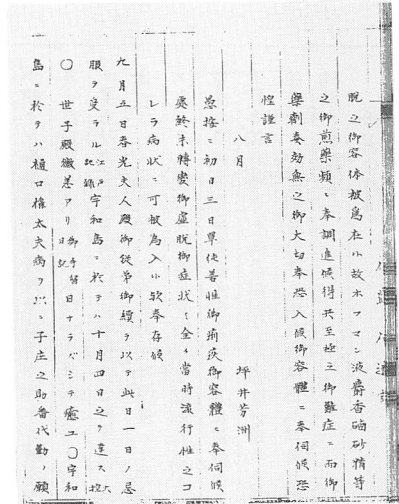 脱之御容体被為在小故ホフマン液麝香磠砂精等
之御煎薬頻ニ奉調進候得共至極之御難症ニ而御
薬剤奏効無之御大切奉恐入候御容體ニ奉伺候恐
惶謹言
八月
坪井芳洲
愚按ニ初日三日單使善性御痢疾御容體ニ奉伺候
處終末轉變御虚脱御症状ハ全ク當時流行性之コ
レラ病状ニ可被為入小歟奉存候
九月五日春光夫人殿御従弟御續ヲ以テ此日一日ノ忌
服ヲ受ラル江戸記録宇和島ニ於テハ十月四日之ヲ達ス大控
〇世子殿微恙アリ御手留日記日ナラズシテ癒ユ〇宇和
島ニ於テハ樋口権太夫病ヲ以テ子庄之助番代勤ノ願